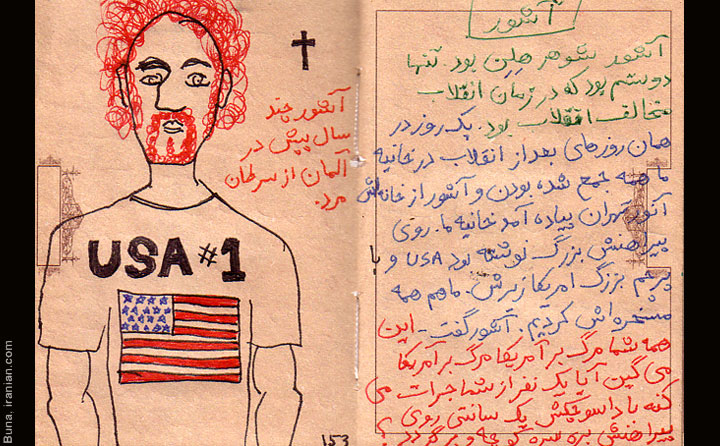 آشور چند
سال پیش در
آلمان از سرطان
مرد.
USA #1
۱۵۳
آشور
آشور شوهر هلن بود. تنها
دوستم بود که در زمان انقلاب
مخالف انقلاب بود. یک روز در
همان روزهای بعد از انقلاب در خانیه
ما همه جمع شده بودن و آشور از خانه‌اش
آنور تهران پیاده آمد خانیه ما. روی
پیراهنش بزرگ نوشته بود USA و
پرچم بزرگ امریکا زیرش. ما هم همه
مسخره‌اش کردیم. آشور گفت - این
همه شما مرگ بر آمریکا مرگ بر آمریکا
می گین آیا یک نفر از شما جرات می
کنه با داس و چکش یک سانتی روی
پیراهنش بره سر کوچه و برگرده؟
Buna, iranian.com